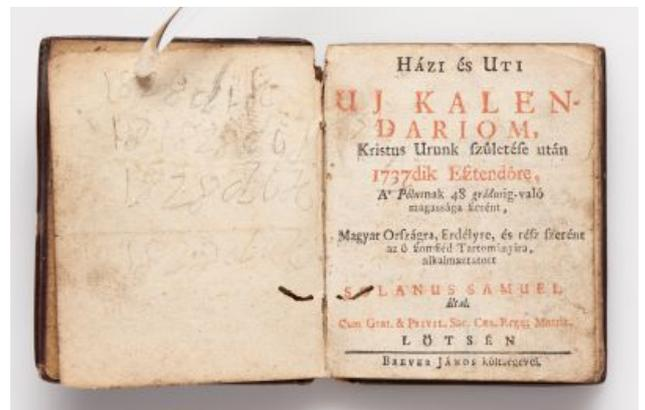 HÁZI és UTI
UJ KALEN-
DARIOM,
Kristus Urunk születése után
1737dik Esztendőre,
A' Pólusnak 48 grádusig-való
magassága szerént,
Magyar Országra, Erdélyre, és rész szerént
az ő szomszéd Tartományira,
alkalmaztatott
SOLANUS SAMUEL
által.
Cum Grat. & Privil. Sac. Cæs. Regiæ Majest.
LŐTSÉN
BREVER JÁNOS költségével.